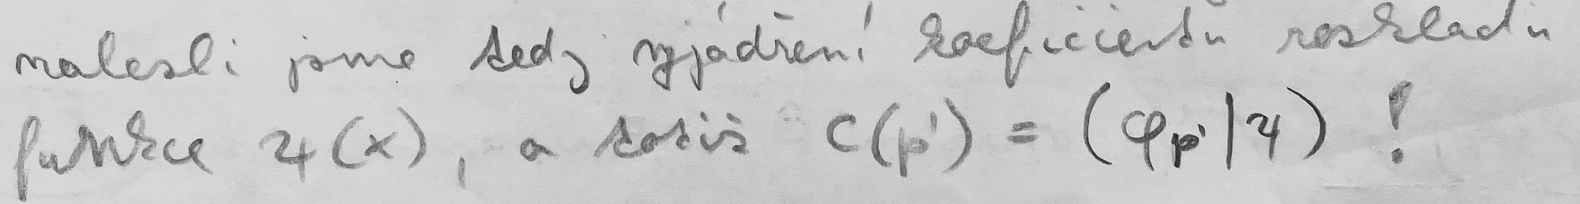 nalezli jsme tedy vyjádření koeficientů rozkladu
funkce ψ(x), a totiž C(p') = (φp'|ψ) !